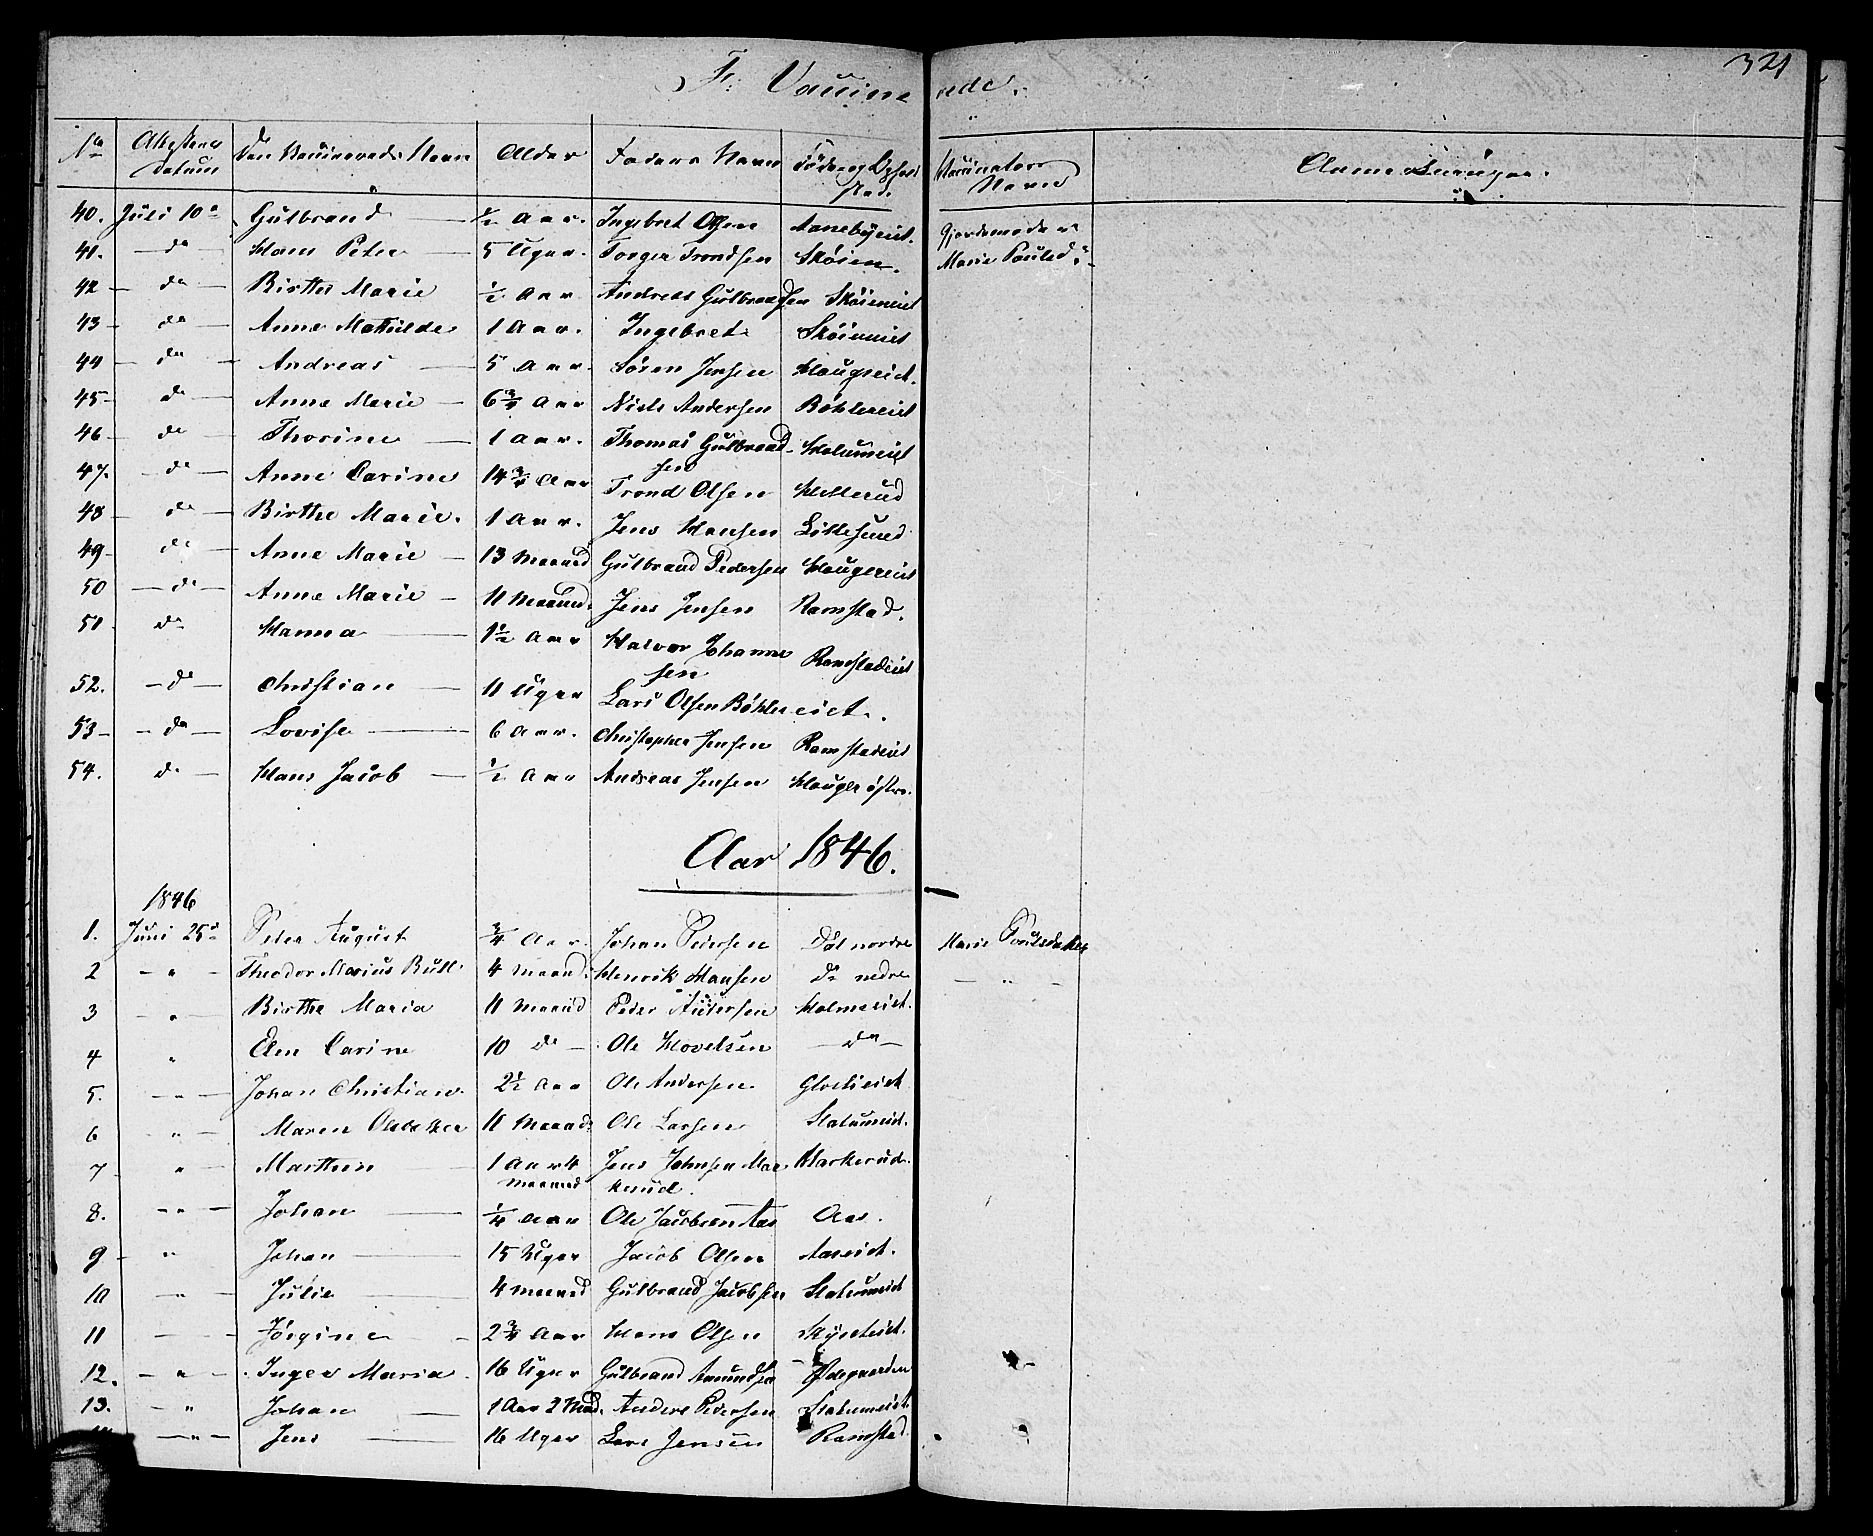 321
F: Vaccinerede.
No Attestens Datum Den Vaccineredes Navn Alder Faders Navn Føde og Opholdssted. Vaccinators Navn Anmærkninger.
40. Juli 10de Gulbrand — ½ Aar. Ingebret Olsen Aanebyeiet. Gjordemoder
41. — do Hans Peter — 5 Uger. Torger Trondsen Skøien. Marie Poulsd:
42 — do — Birthe Marie ½ Aar Andreas Gulbrandsen Skøieneiet
43 — do — Anne Mathilde 1 Aar. Ingebret Skøieneiet
44 — do — Andreas — 5 Aar. Søren Jensen Haugseiet.
45 — do — Anne Marie — 6¾ Aar Niels Andersen Bøhlereiet
46 — do — Thorine — 1 Aar. Thomas Gulbrand-
sen Holumeiet
47. — do — Anne Carine 14¾ Aar Trond Olsen Hellerud
48 — do — Birthe Marie. 1 Aar. Jens Hansen
49 — do — Anne Marie — 13 Maaned Gulbrand Pedersen Haugereiet
50 — do — Anne Marie — 11 Maaned. Jens Jensen Ramstad.
51. do Hanna — 1½ Aar Halvor Johanne
sen Ramstadeiet
52. — do — Christian — 11 Uger Lars Olsen Bøhlereiet.
53 — — do — Lovise — 6 Aar. Christopher Jensen Ramstadeiet
54. do — Hans Jacob — ½ Aar Andreas Jensen Hauger østre.
Aar 1846.
1846
1. Juni 25de Peter August ¾ Aar. Johan Pedersen Døl nordre Marie Poulsdatter
2 — " — Theodor Marius Bull. 4 Maaned: Henrik Hansen do nedre — " —
3 — " — Birthe Maria 11 Maaned Peder Andersen Holmeeiet.
4 " Elen Carine 10 do — Ole Hovelsen — do —
5. — " — Johan Christian. 2½ Aar Ole Andersen
6 " — Maren 11 Maaned: Ole Larsen Slatumeiet.
7 " Marthin 1 Aar 4
Maaned Jens Johnsen Mar
kerud. Markerud.
8. — " — Johan — ¼ Aar Ole Jacobsen Aas Aas.
9 — " Johan — 15 Uger Jacob Olsen Aaseiet.
10 — " — Julie — 4 Maaned Gulbrand Jacobsen Slatumeiet
11 — — Jørgine — 2¾ Aar Hans Olsen
12. — " — Inger Maria. 16 Uger Gulbrand Amundsen Ødegaarden
13. — " Johan — 1 Aar 3 Mnd. Anders Pedersen Slatumeiet.
— " — Jens — 16 Uger Lars Jensen Ramstad